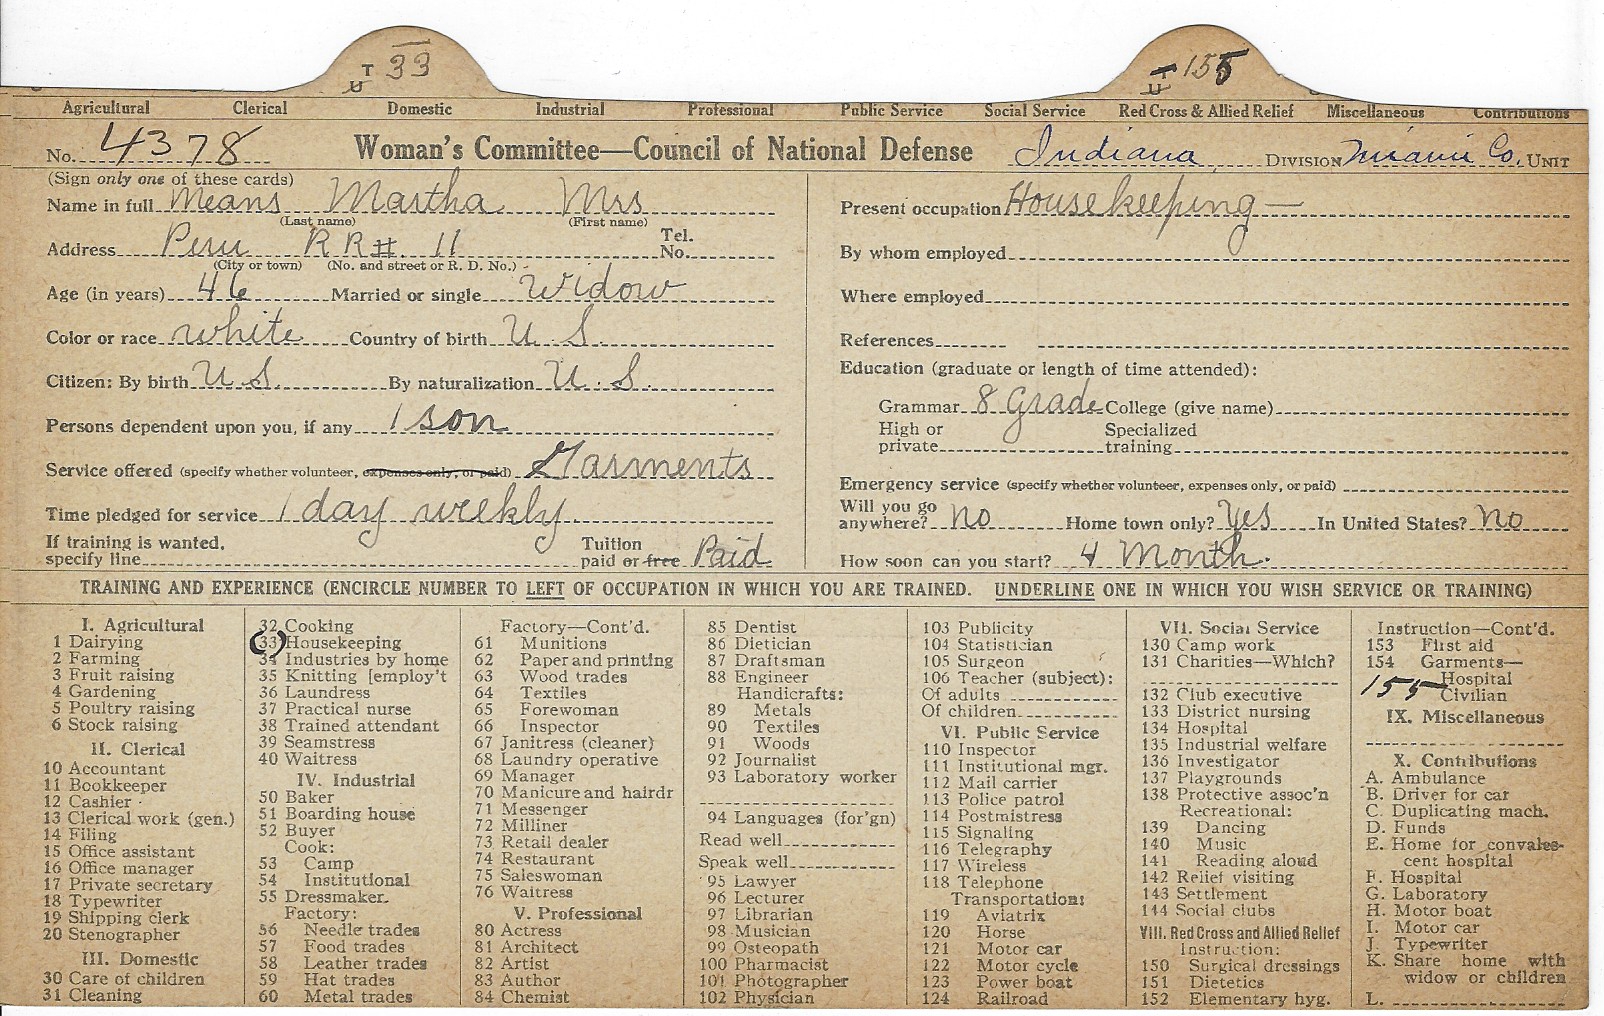 T
U 33
T
U 155
Agricultural Clerical Domestic Industrial Professional Public Service Social Service Red Cross & Allied Relief Miscellaneous Contributions
No. 4378 Woman's Committee—Council of National Defense Indiana DIVISION Miami Co. UNIT
(Sign only one of these cards)
Name in full Means Martha Mrs
(Last name) (First name)
Address Peru R R #. 11 Tel. No.
(City or town) (No. and street or R. D. No.)
Age (in years) 46 Married or single Widow
Color or race white Country of birth U. S.
Citizen: By birth U S. By naturalization U. S.
Persons dependent upon you, if any 1 son
Service offered (specify whether volunteer, expenses only, or paid) Garments
Time pledged for service 1 day weekly
If training is wanted, specify line Tuition paid or free Paid
Present occupation Housekeeping —
By whom employed
Where employed
References
Education (graduate or length of time attended):
Grammar 8 Grade College (give name)
High or private Specialized training
Emergency service (specify whether volunteer, expenses only, or paid)
Will you go anywhere? no Home town only? Yes In United States? no
How soon can you start? 4 Month.
TRAINING AND EXPERIENCE (ENCIRCLE NUMBER TO LEFT OF OCCUPATION IN WHICH YOU ARE TRAINED. UNDERLINE ONE IN WHICH YOU WISH SERVICE OR TRAINING)
I. Agricultural
1 Dairying
2 Farming
3 Fruit raising
4 Gardening
5 Poultry raising
6 Stock raising
II. Clerical
10 Accountant
11 Bookkeeper
12 Cashier
13 Clerical work (gen.)
14 Filing
15 Office assistant
16 Office manager
17 Private secretary
18 Typewriter
19 Shipping clerk
20 Stenographer
III. Domestic
30 Care of children
31 Cleaning
32 Cooking
33 Housekeeping
34 Industries by home
35 Knitting [employ't
36 Laundress
37 Practical nurse
38 Trained attendant
39 Seamstress
40 Waitress
IV. Industrial
50 Baker
51 Boarding house
52 Buyer
Cook:
53 Camp
54 Institutional
55 Dressmaker.
Factory:
56 Needle trades
57 Food trades
58 Leather trades
59 Hat trades
60 Metal trades
Factory—Cont'd.
61 Munitions
62 Paper and printing
63 Wood trades
64 Textiles
65 Forewoman
66 Inspector
67 Janitress (cleaner)
68 Laundry operative
69 Manager
70 Manicure and hairdr
71 Messenger
72 Milliner
73 Retail dealer
74 Restaurant
75 Saleswoman
76 Waitress
V. Professional
80 Actress
81 Architect
82 Artist
83 Author
84 Chemist
85 Dentist
86 Dietician
87 Draftsman
88 Engineer
Handicrafts:
89 Metals
90 Textiles
91 Woods
92 Journalist
93 Laboratory worker
94 Languages (for'gn)
Read well
Speak well
95 Lawyer
96 Lecturer
97 Librarian
98 Musician
99 Osteopath
100 Pharmacist
101 Photographer
102 Physician
103 Publicity
104 Statistician
105 Surgeon
106 Teacher (subject):
Of adults
Of children
VI. Public Service
110 Inspector
111 Institutional mgr.
112 Mail carrier
113 Police patrol
114 Postmistress
115 Signaling
116 Telegraphy
117 Wireless
118 Telephone
Transportation:
119 Aviatrix
120 Horse
121 Motor car
122 Motor cycle
123 Power boat
124 Railroad
VII. Social Service
130 Camp work
131 Charities—Which?
132 Club executive
133 District nursing
134 Hospital
135 Industrial welfare
136 Investigator
137 Playgrounds
138 Protective assoc'n
Recreational:
139 Dancing
140 Music
141 Reading aloud
142 Relief visiting
143 Settlement
144 Social clubs
VIII. Red Cross and Allied Relief
Instruction:
150 Surgical dressings
151 Dietetics
152 Elementary hyg.
Instruction—Cont'd.
153 First aid
154 Garments—
Hospital
155 Civilian
IX. Miscellaneous
X. Contributions
A. Ambulance
B. Driver for car
C. Duplicating mach.
D. Funds
E. Home for convales-
cent hospital
F. Hospital
G. Laboratory
H. Motor boat
I. Motor car
J. Typewriter
K. Share home with
widow or children
L.